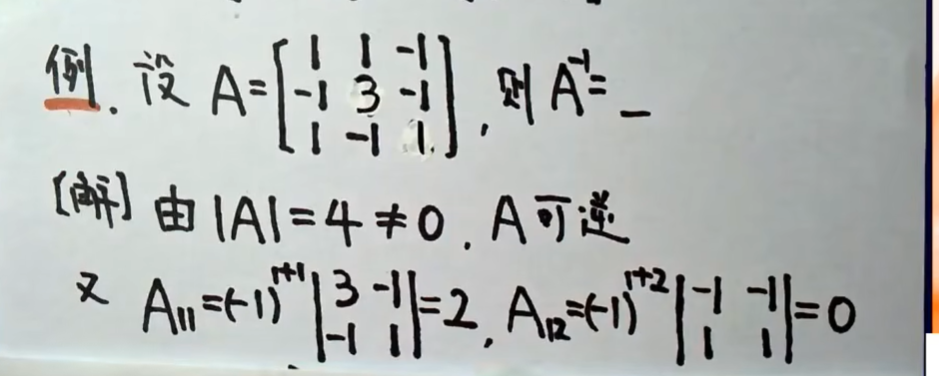 例. 设 A=[1 1 -1; -1 3 -1; 1 -1 1.], 则 A⁻¹=_
[解] 由 |A|=4≠0. A可逆
又 A₁₁=(-1)¹⁺¹|3 -1; -1 1|=2, A₁₂=(-1)¹⁺²|-1 -1; 1 1|=0